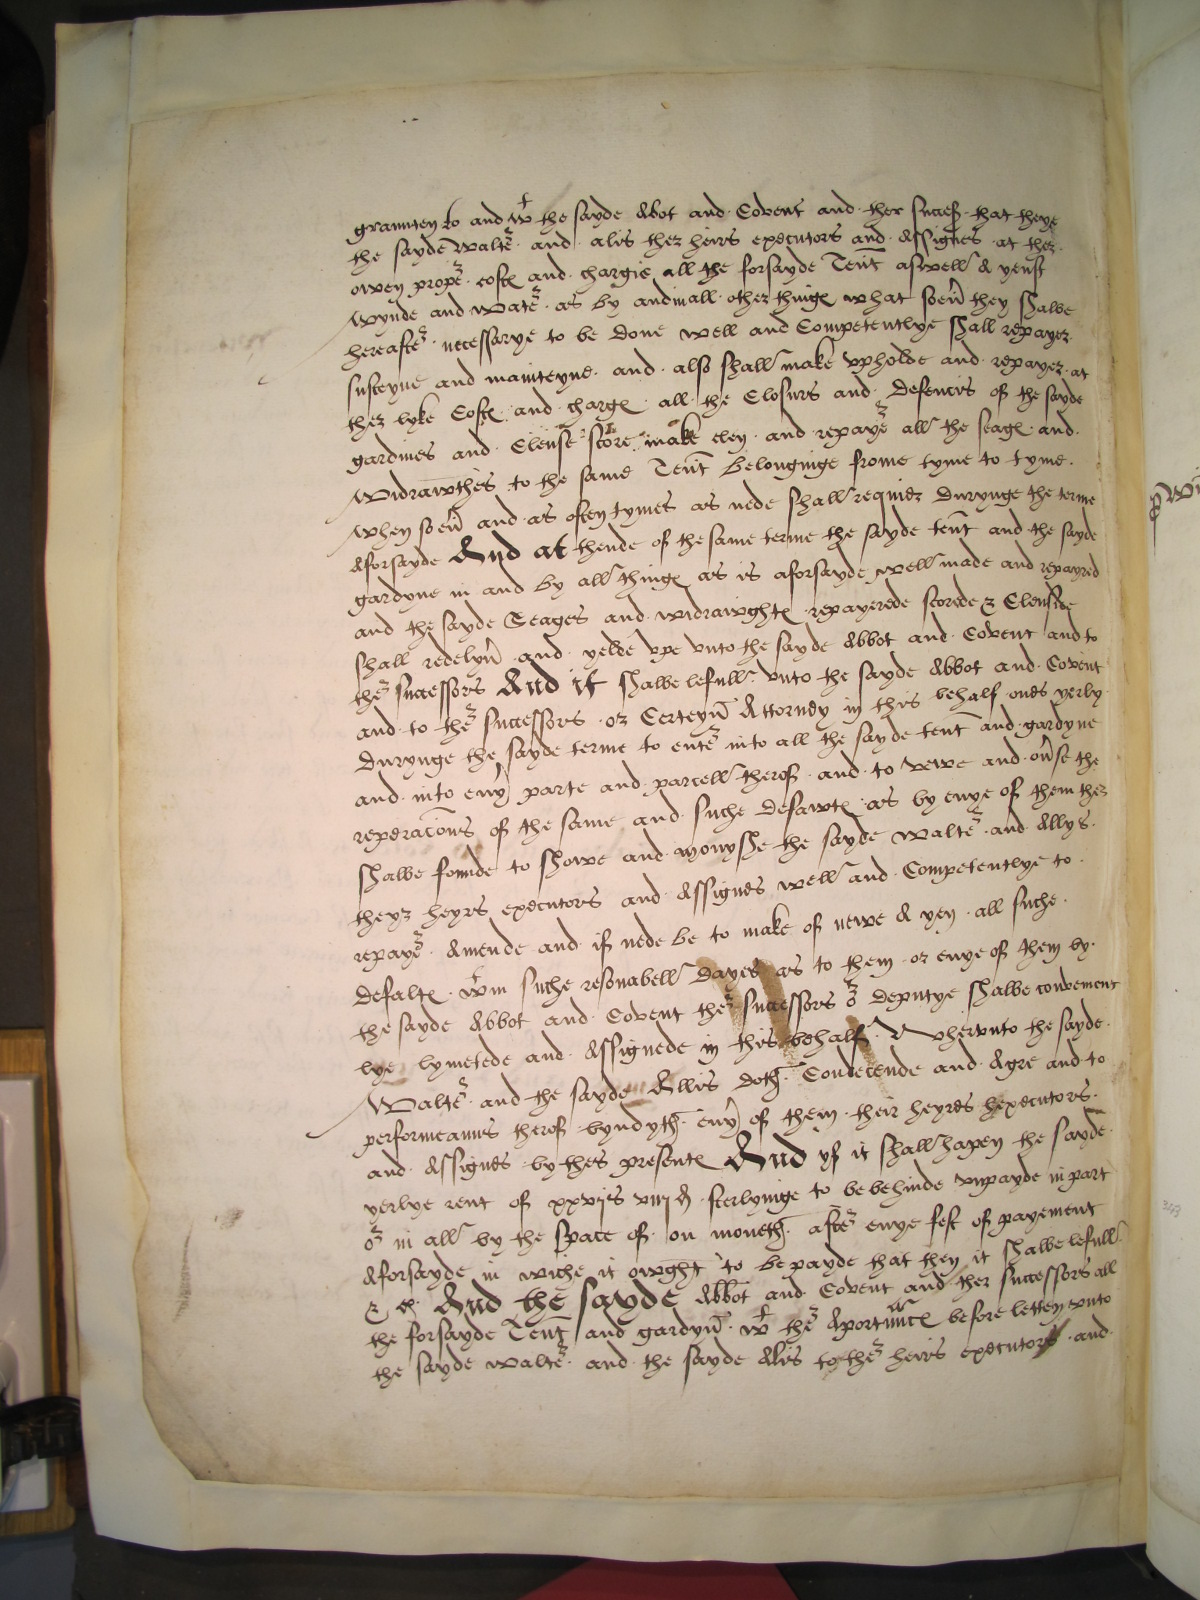 graunten to and wt the sayde Abbot and Covent and ther success that theye
the sayde Walter and alis ther heirs executors and Assignes at ther
owen proper costes and chargis all the forsayde Tent aswell A yenst
Wynde and Water as by and in all other thinges what soever they shalbe
hereafter necessarye to be done well and Competentlye shall repayer
susteyne and mainteyne and also shall make upholde and repayer at
ther lyke Costes and charges all the Closurs and Defencis of the sayde
gardines and Clense score make cley and repayer all the seages and
Widrawthes to the same Tent belonginge frome tyme to tyme
When soever and as often tymes as nede shall requier Durynge the terme
Aforsayde And at thende of the same terme the sayde tent and the sayde
gardyne in and by all thinges as is aforsayde well made and repayred
and the sayde Seages and widrawghtes repayerede scorede & Clensede
shall redelyver and yelde vpe vnto the sayde Abbot and Covent and to
ther successors And it shalbe lefull vnto the sayde Abbot and Covent
and to ther successors or Certeyn Attorney in this behalf ones yerly
Durynge the sayde terme to enter into all the sayde tent and gardyne
and into every parte and parcell therof and to vewe and overse the
reperacions of the same and suche defawtes as by enye of them ther
shalbe founde to showe and monyshe the sayde Walter and Allys
theyr heyrs executors and Assignes well and Competentlye to
repayer Amende and if nede be to make of newe A yen all suche
Defaltes wtin suche resonabell dayes as to them or enye of them by
the sayde Abbot and Covent ther successors or deputye shalbe convenient
lye lymetede and Assignede in this behalf Whervnto the sayde
Walter and the sayde Allis doth Condecende and Agre and to
performeanns therof byndyth every of them their heyres hexecutors
and Assignes by thes presentes And yf it shall hapen the sayde
yerlye rent of xxvjs viij d sterlynige to be behinde vnpayde in part
or in all by the space of on moneth after enye fest of payement
Aforsayde in wiche it owght to be payde that then it shalbe lefull
& And the sayde Abbot and Covent and ther successors all
the forsayde Tent and gardyn wt ther Aportnncs before letten vnto
the sayde Walter and the sayde Alis to ther heirs executors and